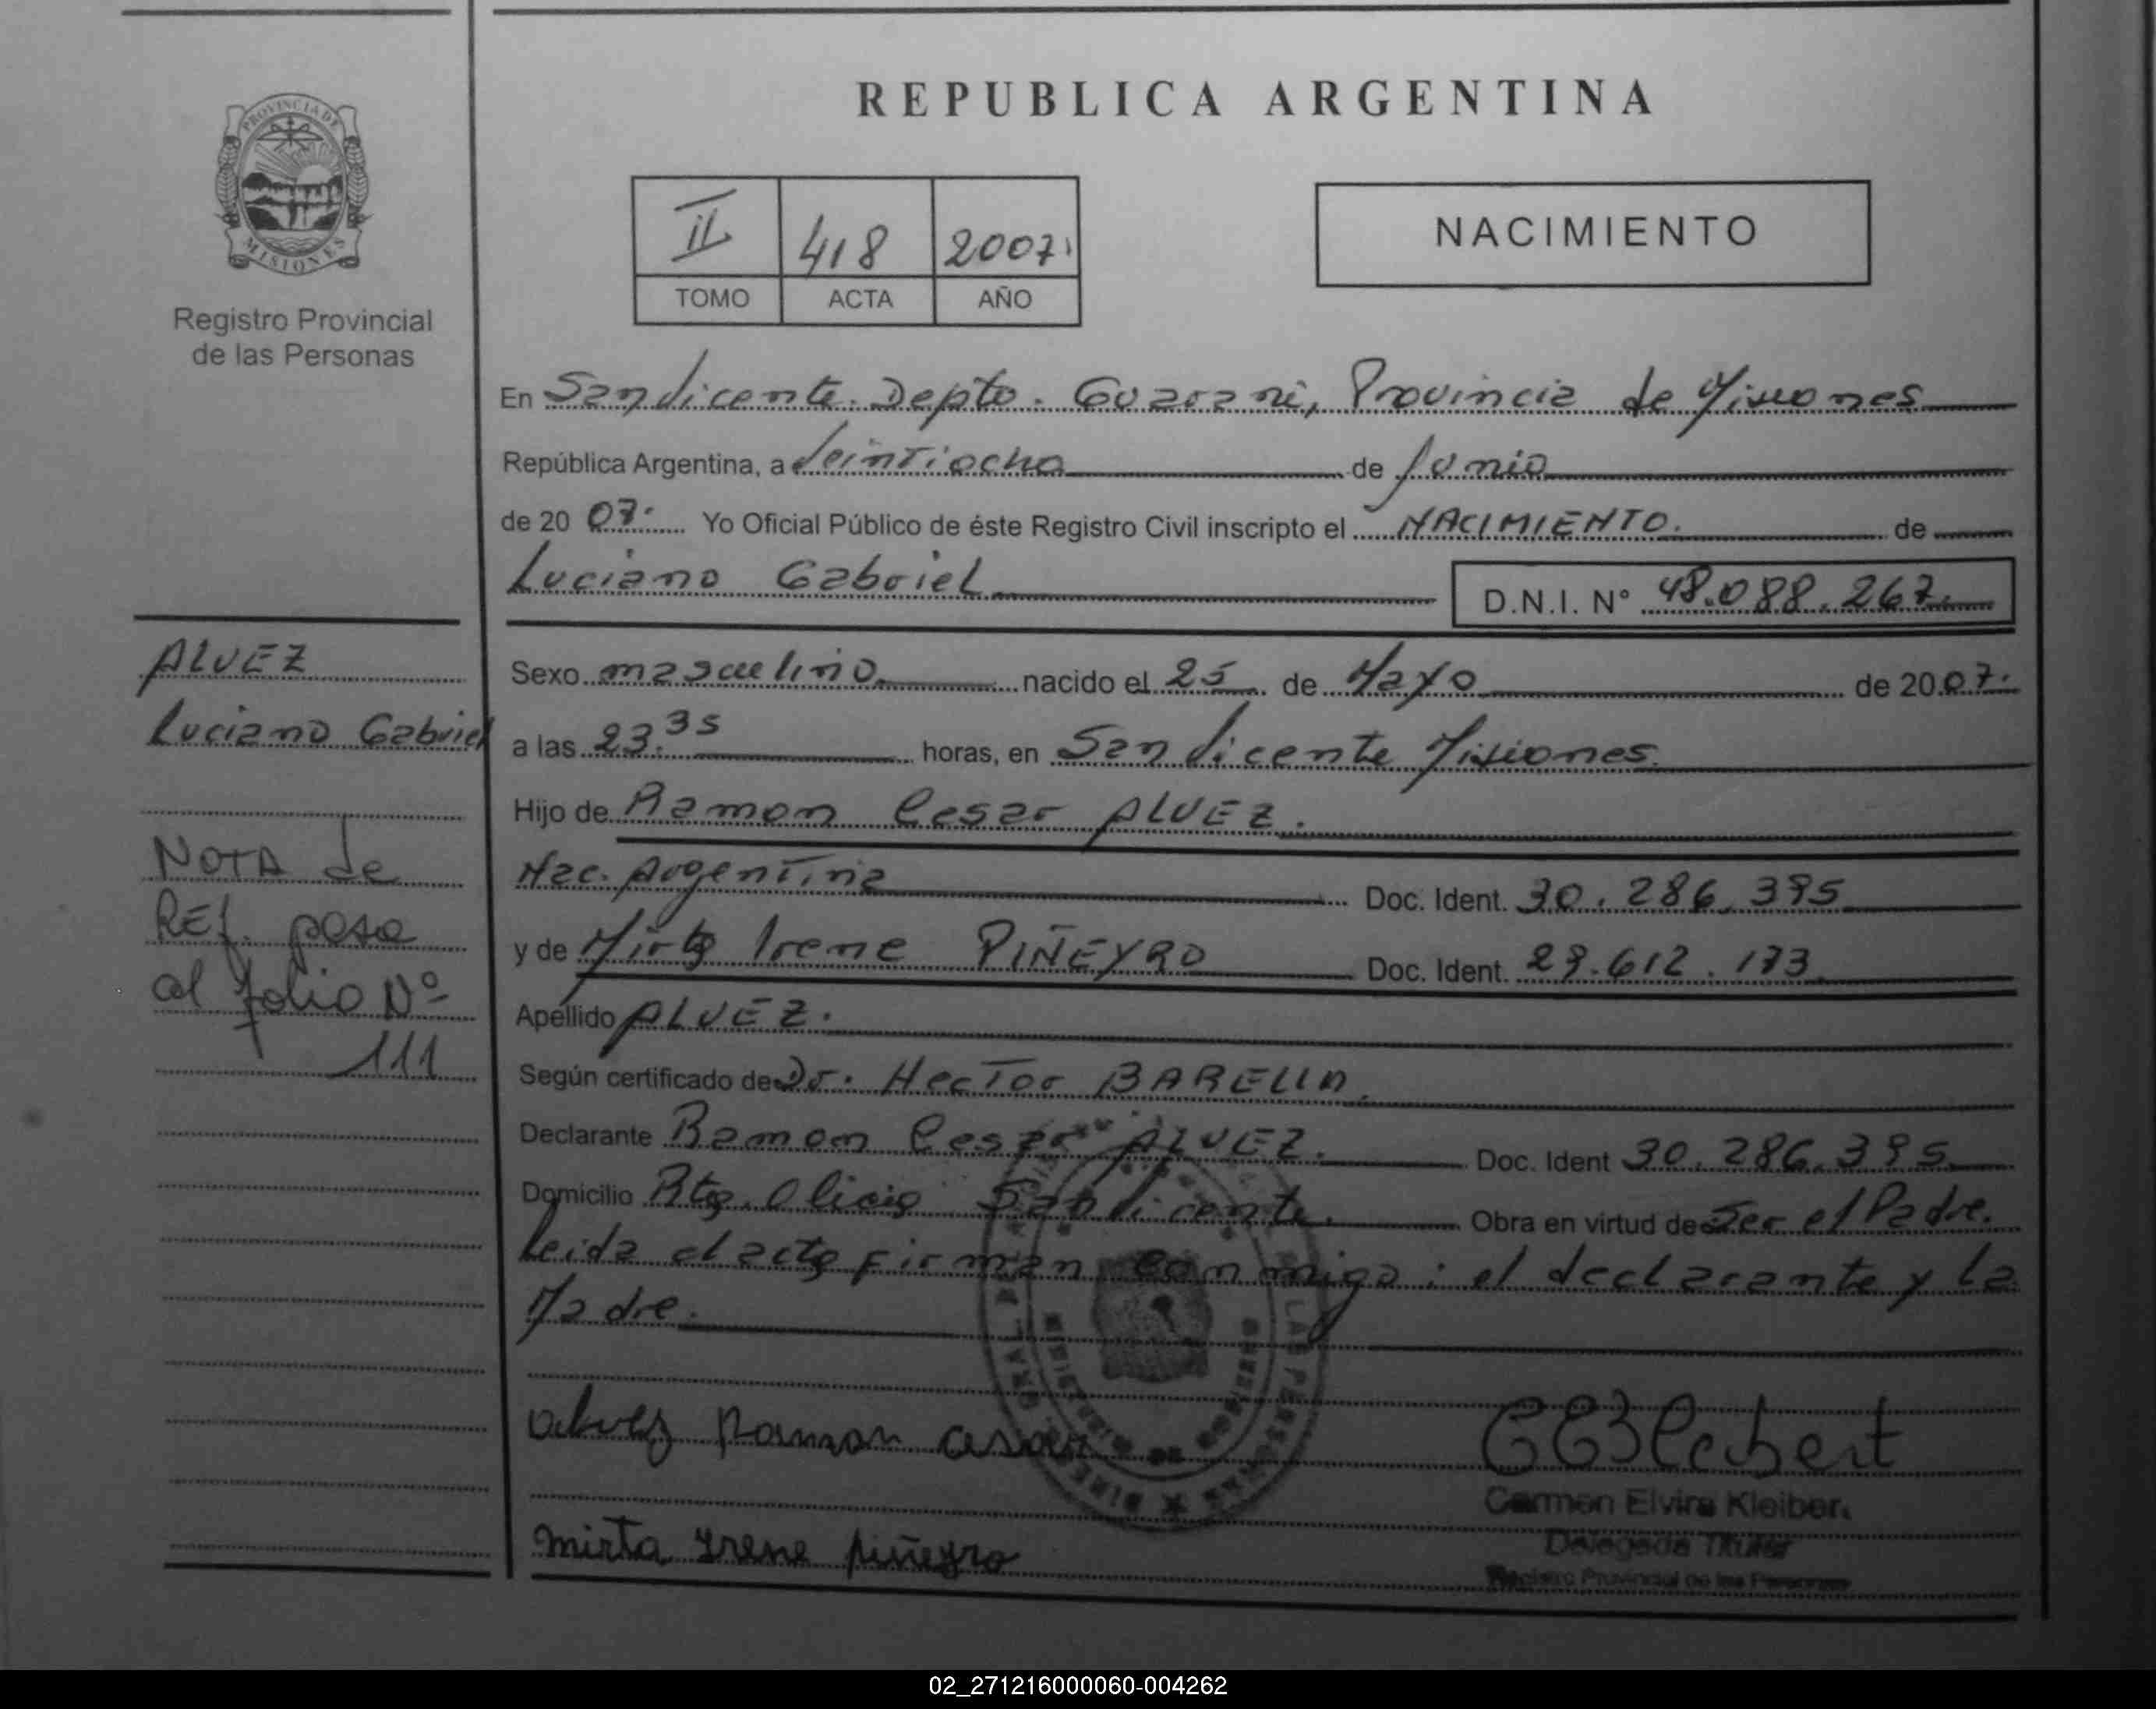 REPUBLICA ARGENTINA
PROVINCIA DE
MISIONES
Registro Provincial
de las Personas
II 418 2007
TOMO ACTA AÑO
NACIMIENTO
En San Vicente. Depto. Guarani, Provincia de Misiones
República Argentina, a Veintiocho de Junio
de 20 07. Yo Oficial Público de éste Registro Civil inscripto el NACIMIENTO. de
Luciano Gabriel D.N.I. Nº 48.088.267.
ALVEZ
Luciano Gabriel
NOTA de
REf. pasa
al folio Nº
111
Sexo masculino nacido el 25 de Mayo de 2007.
a las 23.35 horas, en San Vicente Misiones.
Hijo de Ramon Cesar ALVEZ.
Nac. Argentina Doc. Ident. 30.286.395
y de Mirta Irene PIÑEYRO Doc. Ident. 29.612.173
Apellido ALVEZ.
Según certificado de Dr. Hector BARELLA
Declarante Ramon Cesar ALVEZ. Doc. Ident 30.286.395
Domicilio Rta. Olicia San Vicente. Obra en virtud de Ser el Padre.
Leida el acta firman conmigo: el declarante y la
Madre.
alvez Ramon cesar
mirta Irene piñeyro
Carmen Elvira Kleiber
Delegada Titular
Registro Provincial de las Personas
02_271216000060-004262